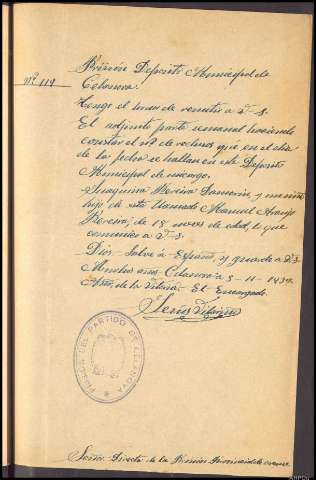 Prisión Deposito Municipal de
Celanova.
Nº 119
Tengo el honor de remitir a V. S.
El adjunto parte semanal haciendo
constar el nº de reclusos que en el dia
de la fecha se hallan en este Deposito
Municipal de mi cargo.
Joaquina Pereira y
hijo de esta llamado Manuel Araujo
Pereira, de 18 meses de edad, lo que
comunico a V. S.
Dios Salve a España, y guarde a V. S.
Muchos años Celanova a 5-11-1939.
Año, de la Victoria El Encargado.
PRISION DEL PARTIDO DE CELANOVA
Señor Director de la Prision Provincial de Orense